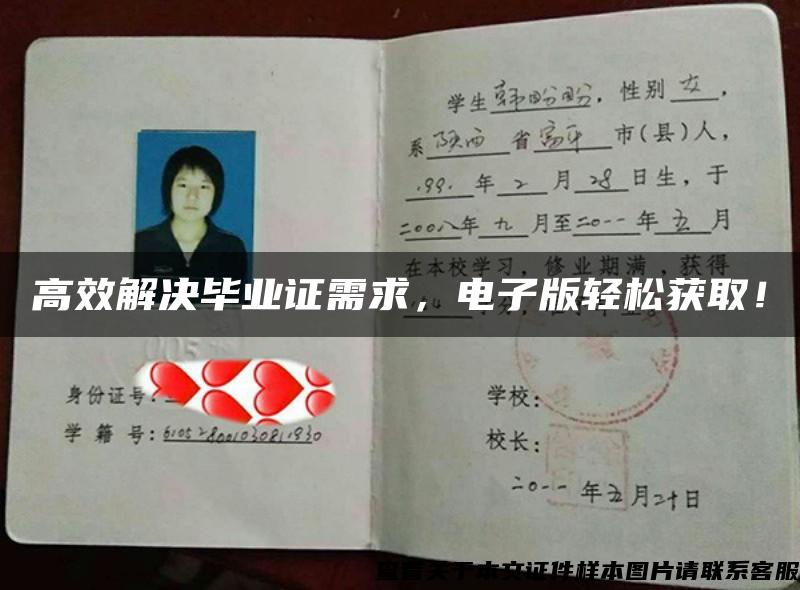 学生韩盼盼，性别女，
系陕西省富平市(县)人，
1991年2月28日生，于
二〇〇八年九月至二〇一一年五月
在本校学习，修业期满，获得
高效解决毕业证需求，电子版轻松获取！
身份证号：
学籍号：
学校：
校长：
二〇一一年五月二十日
查看关于本文证件样本图片请联系客服